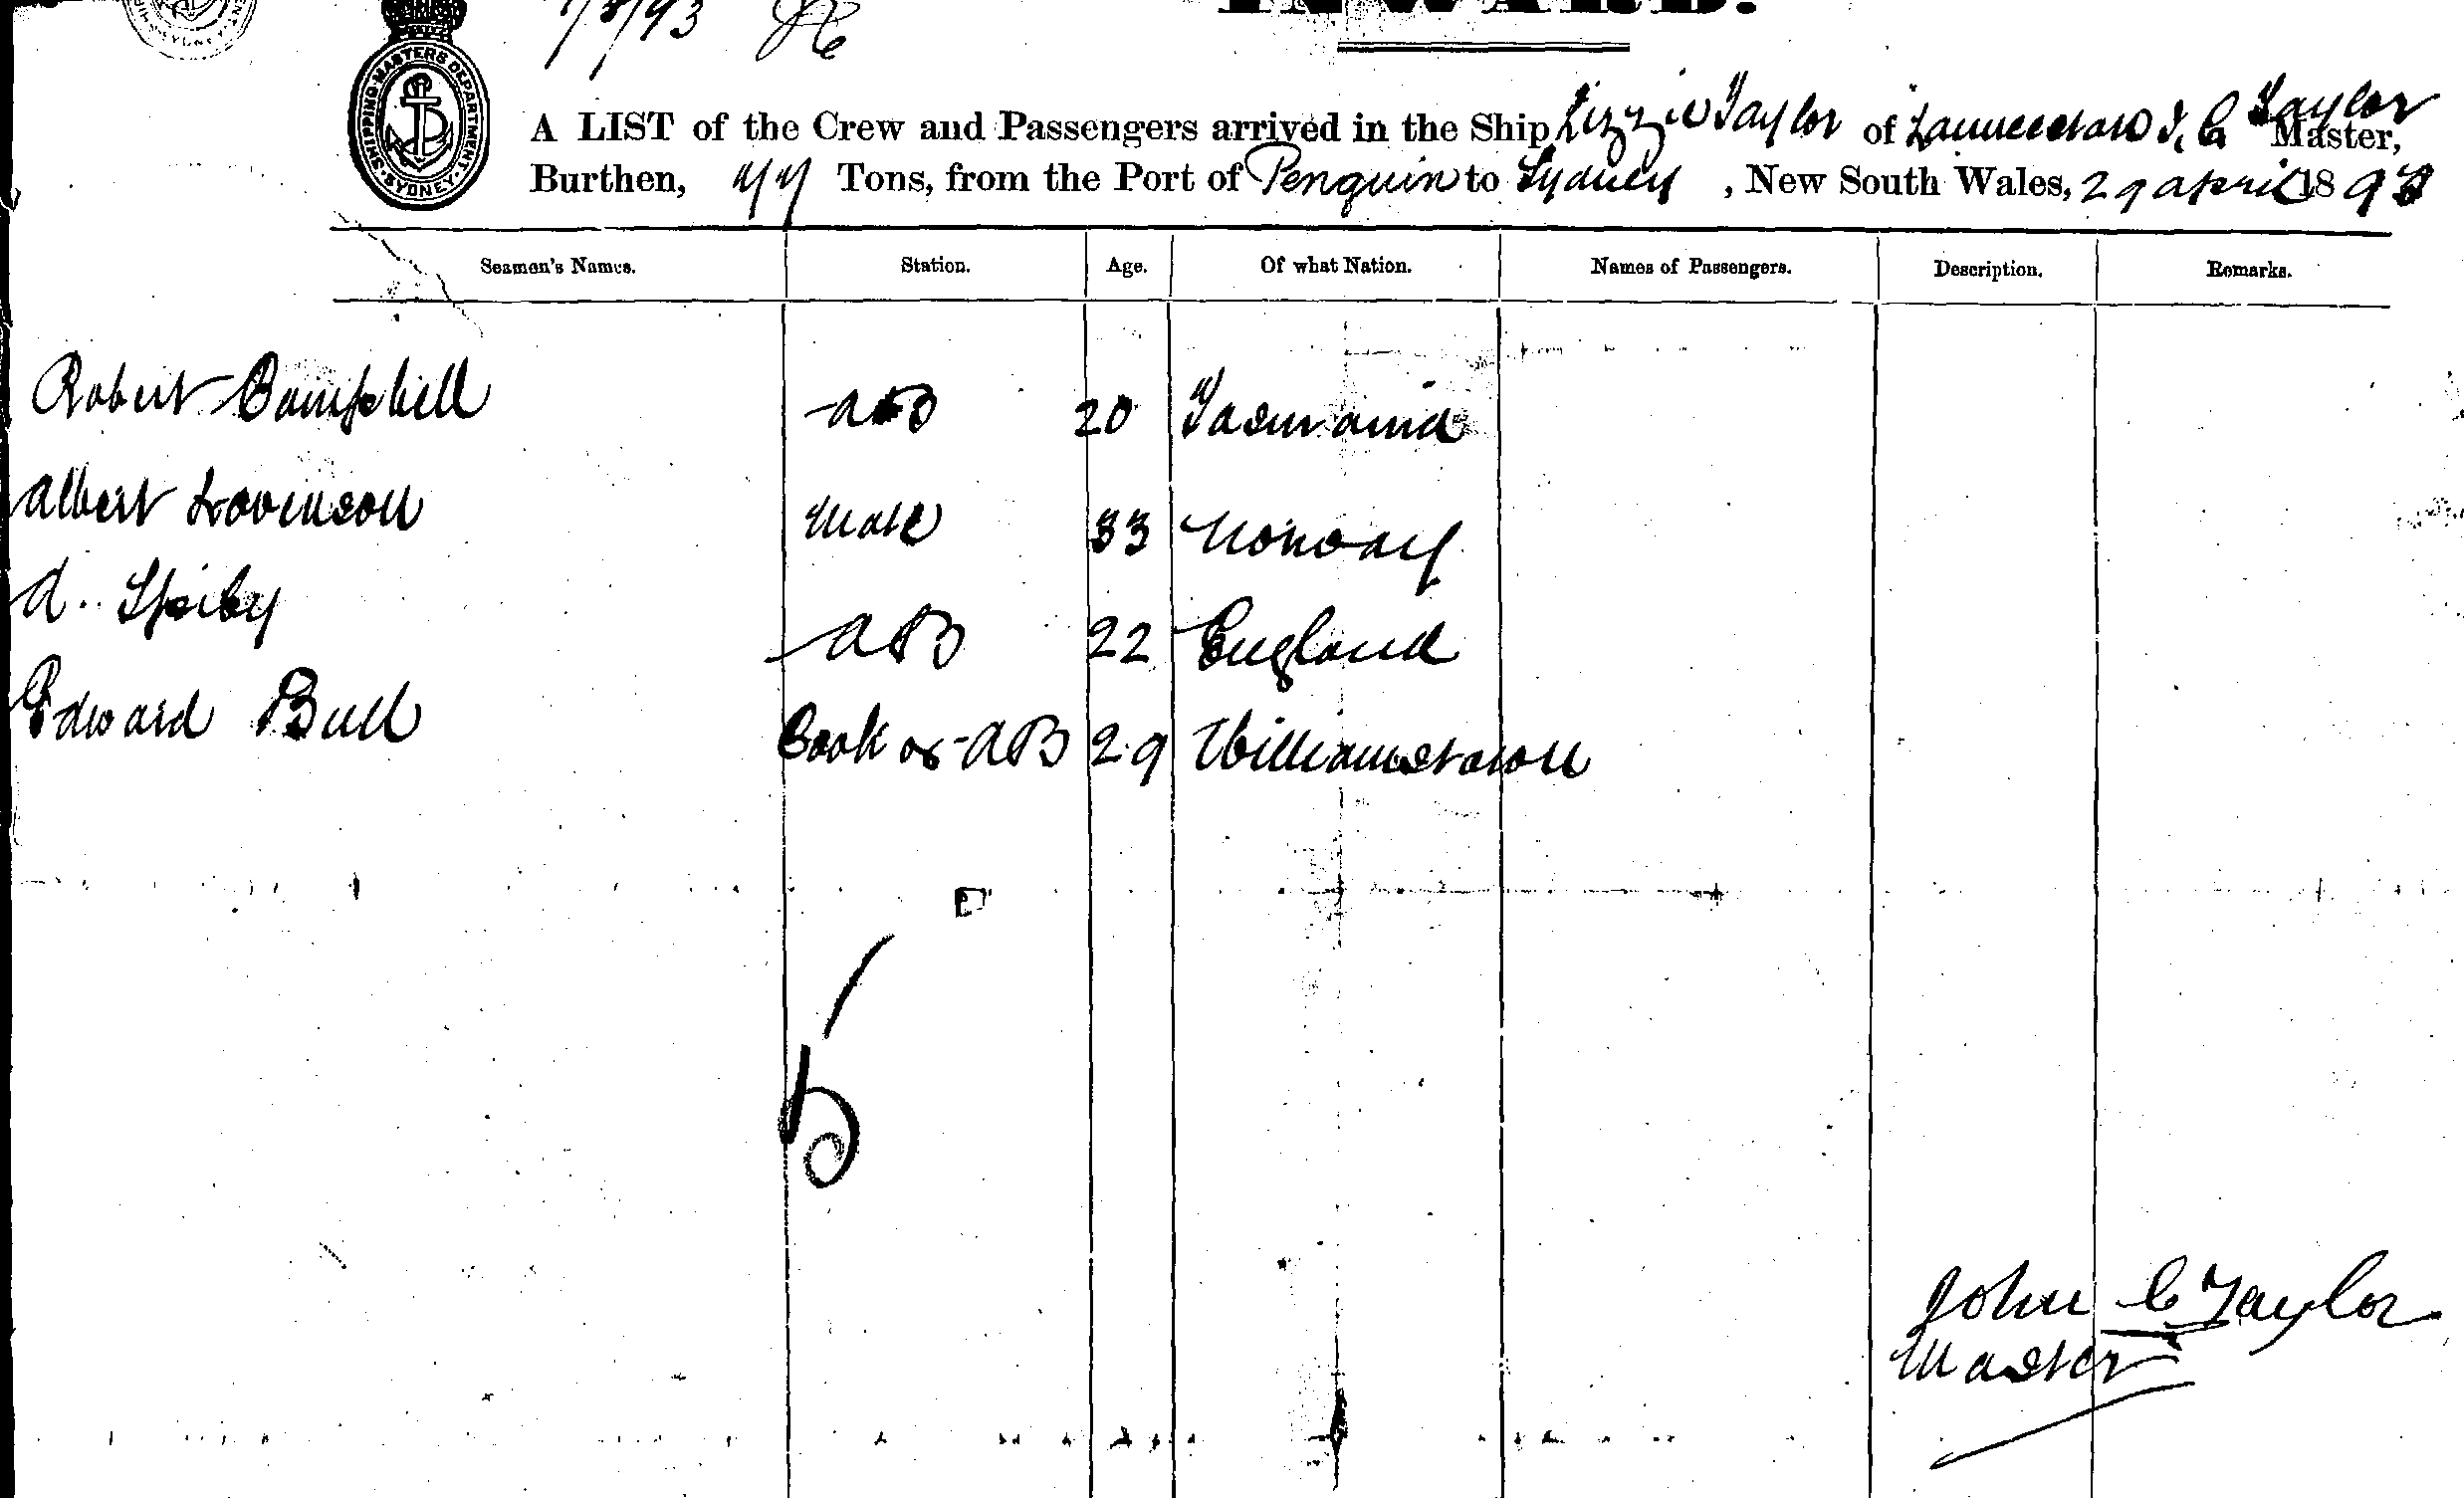 1/5/93
INWARD.
SHIPPING MASTERS DEPARTMENT SYDNEY
A LIST of the Crew and Passengers arrived in the Ship Lizzie Taylor of Launceston J. C Taylor Master,
Burthen, Tons, from the Port of Penguin to Sydney, New South Wales, 29 April 1893
Seamen's Names. Station. Age. Of what Nation. Names of Passengers. Description. Remarks.
Robert Campbell AB 20 Tasmania
Albert Lovenson Mate 33 Norway
A. Speiby AB 22 England
Edward Bull Cook & AB 29 Williamstown
John C Taylor
Master